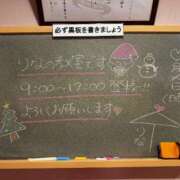 必ず黒板を書きましょう
りなの教室です
9:00〜17:00登校!!
よろしくお願いします♥